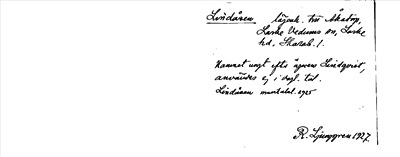 Lindåsen lägenh. tru Åkatorp,
Larske Vedums sn, Laske
hd, Skarab. l.
Namnet ungt efter ägaren Lindqvist,
användes ej i dagl. tal.
Lindåsen mantalsl. 1925
R. Ljunggren 1927.